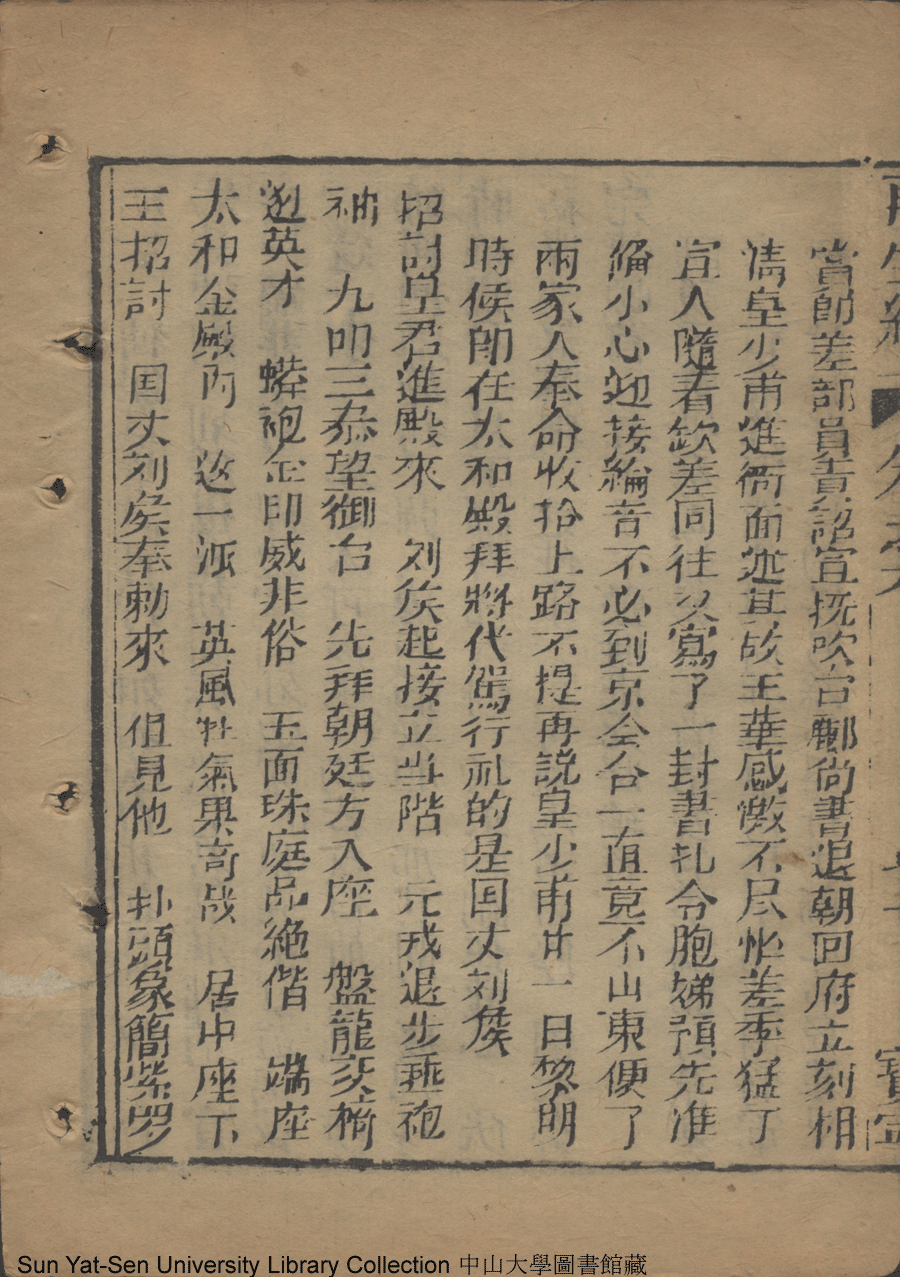 當即差部員責詔宣撫吹台酈尚書退朝回府立刻相
倩皇少甫進衙面迯其故王華感激不尽怇差季猛丁
宜人隨着欽差同往又寫了一封書札令胞娣預先准
俻小心迎接綸音不必到京会合一直竟不山東便了
兩家人奉命收拾上路不提再説皇少甫廿一日黎明
時候即在太和殿拜將代駕行礼的是国丈刘矦
招討皇君進殿來 刘矦起接立当階 元戎退步垂袍
袖 九叩三叅望御台 先拜朝廷方入座 盤龍交椅
逊英才 蟒袍金印威非俗 玉面珠庭品絶偕 端座
太和金殿内 这一派 英風壮氣果奇哉 居中座下
王招討 国丈刘矦奉勅來 但見他 扑頭象簡紫罗
Sun Yat-Sen University Library Collection 中山大學圖書館藏